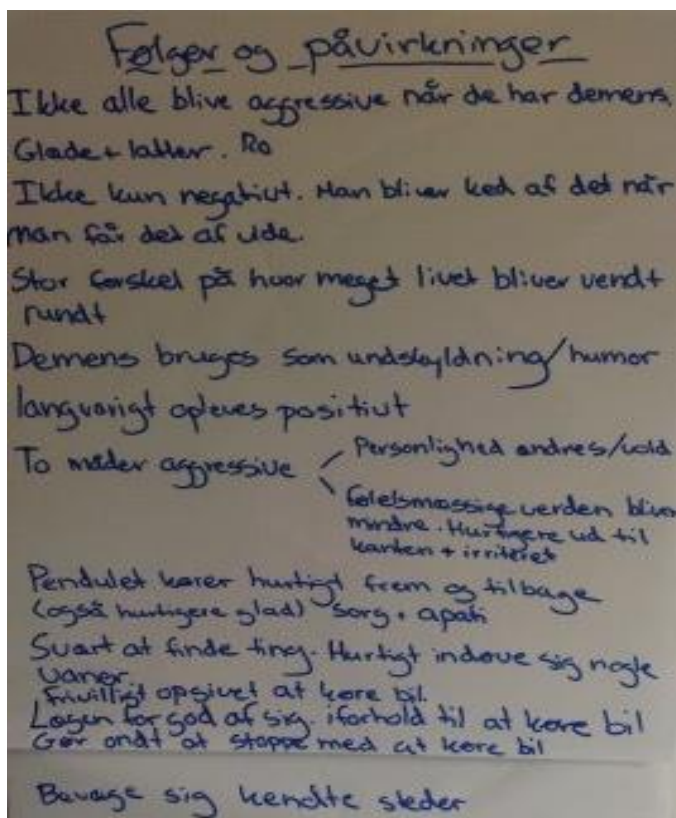 Følger og påvirkninger
Ikke alle blive aggressive når de har demens.
Glade + latter. Ro
Ikke kun negativt. Man bliver ked af det når
man får det af vide.
Stor forskel på hvor meget livet bliver vendt
rundt
Demens bruges som undskyldning/humor
langvarigt opleves positivt
To måder aggressive
Personlighed ændres/vold
følelsmæssige verden bliver
mindre. Hurtigere ud til
kanten + irriteret
Pendulet kører hurtigt frem og tilbage
(også hurtigere glad) Sorg + apati
Svært at finde ting. Hurtigt indøve sig nogle
vaner.
Frivilligt opgivet at køre bil.
Lægen for god af sig. iforhold til at køre bil
Gør ondt at stoppe med at køre bil
Bevæge sig kendte steder